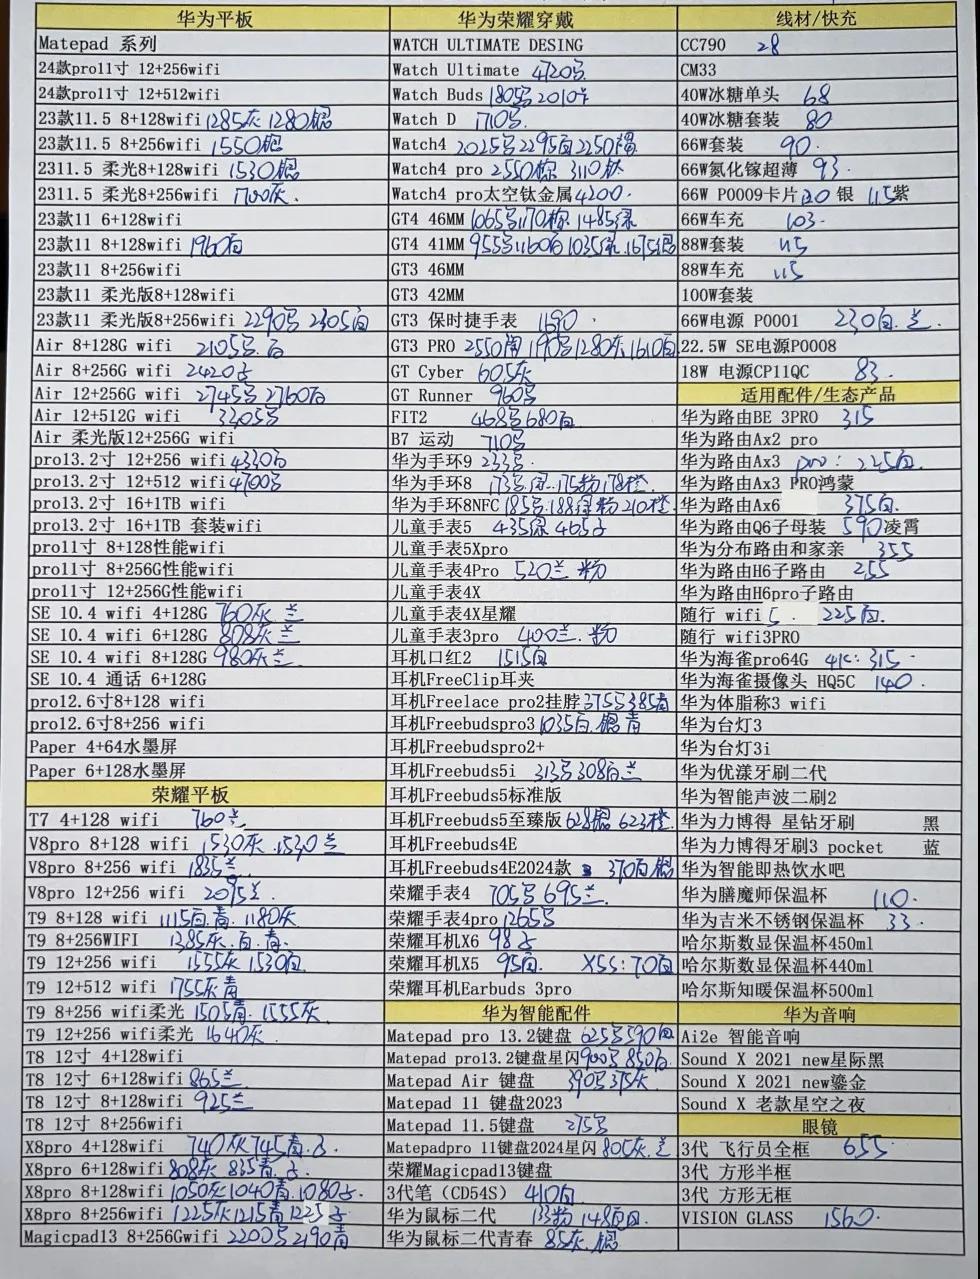 华为平板
Matepad 系列
24款pro11寸 12+256wifi
24款pro11寸 12+512wifi
23款11.5 8+128wifi 1285灰 1280银
23款11.5 8+256wifi 1550银
2311.5 柔光8+128wifi 1530银
2311.5 柔光8+256wifi 1700灰.
23款11 6+128wifi
23款11 8+128wifi 1960白
23款11 8+256wifi
23款11 柔光版8+128wifi
23款11 柔光版8+256wifi 2290 2305白
Air 8+128G wifi 2105
Air 8+256G wifi 2420
Air 12+256G wifi 2745 2760白
Air 12+512G wifi 3305
Air 柔光版12+256G wifi
pro13.2寸 12+256 wifi 4330
pro13.2寸 12+512 wifi 4700
pro13.2寸 16+1TB wifi
pro13.2寸 16+1TB 套装wifi
pro11寸 8+128性能wifi
pro11寸 8+256G性能wifi
pro11寸 12+256G性能wifi
SE 10.4 wifi 4+128G 760灰 兰
SE 10.4 wifi 6+128G 808灰 兰
SE 10.4 wifi 8+128G 980灰 兰
SE 10.4 通话 6+128G
pro12.6寸8+128 wifi
pro12.6寸8+256 wifi
Paper 4+64水墨屏
Paper 6+128水墨屏
荣耀平板
T7 4+128 wifi 760兰
V8pro 8+128 wifi 1530灰 1530兰
V8pro 8+256 wifi 1835兰
V8pro 12+256 wifi 2095兰
T9 8+128 wifi 1115白.青. 1180灰
T9 8+256WIFI 1385灰.白.青.
T9 12+256 wifi 1555灰 1530白
T9 12+512 wifi 1755灰青
T9 8+256 wifi柔光 1505青. 1555灰
T9 12+256 wifi柔光 1640灰.
T8 12寸 4+128wifi
T8 12寸 6+128wifi 865兰
T8 12寸 8+128wifi 925兰
T8 12寸 8+256wifi
X8pro 4+128wifi 740灰 745青.
X8pro 6+128wifi 808灰 835青.
X8pro 8+128wifi 1050灰 1040青. 1080
X8pro 8+256wifi 1225灰 1215青 1225
Magicpad13 8+256Gwifi 2200 2190青
华为荣耀穿戴
WATCH ULTIMATE DESING
Watch Ultimate 4720
Watch Buds 1805 2010
Watch D 1710
Watch4 2025 2295白 2250褐
Watch4 pro 2550棕 3110钛
Watch4 pro太空钛金属 4200.
GT4 46MM 1065 1170棕 1485绿
GT4 41MM 955 1160白 1035 1675银
GT3 46MM
GT3 42MM
GT3 保时捷手表 1690
GT3 PRO 2550陶 1190 1280灰 1610白
GT Cyber 605灰
GT Runner 960
FIT2 468 680白
B7 运动 710
华为手环9 233
华为手环8 173 175粉 178橙
华为手环8NFC 185 188绿粉 210橙
儿童手表5 435绿 465
儿童手表5Xpro
儿童手表4Pro 520兰 粉
儿童手表4X
儿童手表4X星耀
儿童手表3pro 400兰.粉
耳机口红2 1515白
耳机FreeClip耳夹
耳机Freelace pro2挂脖 375 385青
耳机Freebudspro3 1035白.银 青
耳机Freebudspro2+
耳机Freebuds5i 313 308白兰
耳机Freebuds5标准版
耳机Freebuds5至臻版 628银 623橙
耳机Freebuds4E
耳机Freebuds4E2024款 370白银
荣耀手表4 705 695兰.
荣耀手表4pro 1265
荣耀耳机X6 98
荣耀耳机X5 95白. X5S:70白
荣耀耳机Earbuds 3pro
华为智能配件
Matepad pro 13.2键盘 625 590白
Matepad pro13.2键盘星闪 900 850
Matepad Air 键盘 390 375灰
Matepad 11 键盘2023
Matepad 11.5键盘 275
Matepadpro 11键盘2024星闪 805灰.兰
荣耀Magicpad13键盘
3代笔（CD54S） 410白
华为鼠标二代 133粉 148
华为鼠标二代青春 85灰.银
线材/快充
CC790 28
CM33
40W冰糖单头 68
40W冰糖套装 80
66W套装 90.
66W氮化镓超薄 93.
66W P0009卡片 120 银 115紫
66W车充 103.
88W套装 115
88W车充 115
100W套装
66W电源 P0001 230白.兰.
22.5W SE电源P0008
18W 电源CP11QC 83.
适用配件/生态产品
华为路由BE 3PRO 315
华为路由Ax2 pro
华为路由Ax3 pro: 225白.
华为路由Ax3 PRO鸿蒙
华为路由Ax6 375白.
华为路由Q6子母装 590凌霄
华为分布路由和家亲 355
华为路由H6子路由 255
华为路由H6pro子路由
随行 wifi 5. 225白.
随行 wifi3PRO
华为海雀pro64G 41C: 315
华为海雀摄像头 HQ5C 140.
华为体脂称3 wifi
华为台灯3
华为台灯3i
华为优漾牙刷二代
华为智能声波二刷2
华为力博得 星钻牙刷 黑
华为力博得牙刷3 pocket 蓝
华为智能即热饮水吧
华为膳魔师保温杯 110.
华为吉米不锈钢保温杯 33.
哈尔斯数显保温杯450ml
哈尔斯数显保温杯440ml
哈尔斯知暖保温杯500ml
华为音响
Ai2e 智能音响
Sound X 2021 new星际黑
Sound X 2021 new鎏金
Sound X 老款星空之夜
眼镜
3代 飞行员全框 655
3代 方形半框
3代 方形无框
VISION GLASS 1560.